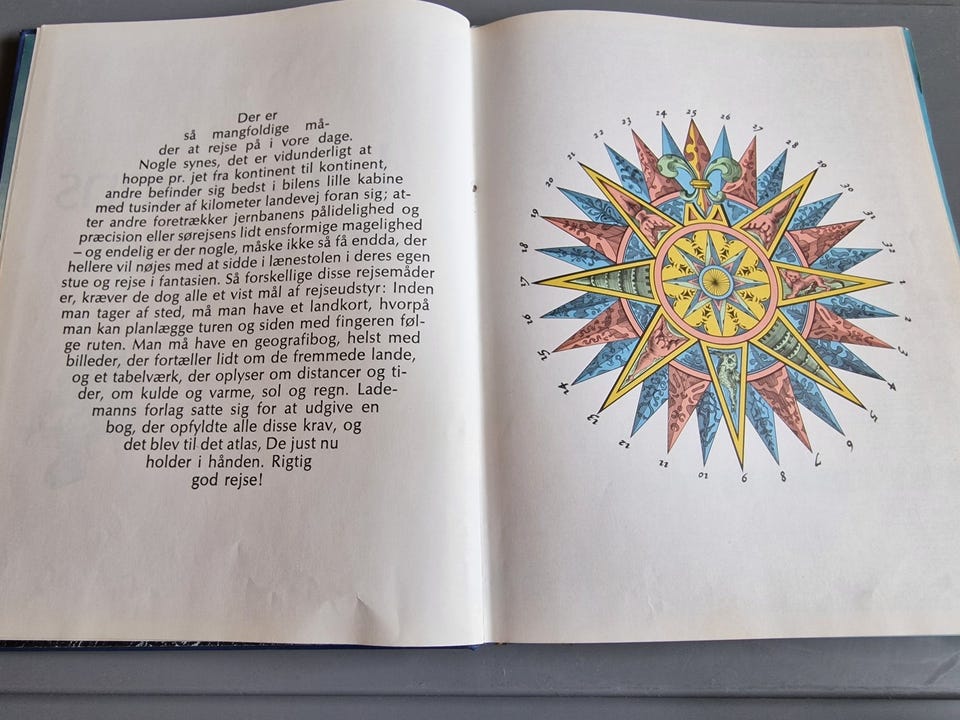 Der er
så mangfoldige må-
der at rejse på i vore dage.
Nogle synes, det er vidunderligt at
hoppe pr. jet fra kontinent til kontinent,
andre befinder sig bedst i bilens lille kabine
med tusinder af kilometer landevej foran sig; at-
ter andre foretrækker jernbanens pålidelighed og
præcision eller sørejsens lidt ensformige magelighed
– og endelig er der nogle, måske ikke så få endda, der
hellere vil nøjes med at sidde i lænestolen i deres egen
stue og rejse i fantasien. Så forskellige disse rejsemåder
er, kræver de dog alle et vist mål af rejseudstyr: Inden
man tager af sted, må man have et landkort, hvorpå
man kan planlægge turen og siden med fingeren føl-
ge ruten. Man må have en geografibog, helst med
billeder, der fortæller lidt om de fremmede lande,
og et tabelværk, der oplyser om distancer og ti-
der, om kulde og varme, sol og regn. Lade-
manns forlag satte sig for at udgive en
bog, der opfyldte alle disse krav, og
det blev til det atlas, De just nu
holder i hånden. Rigtig
god rejse!
25
24
26
23
27
22
28
21
29
20
30
19
31
18
32
17
1
16
2
15
3
14
13
5
12
6
11
7
10
9
8